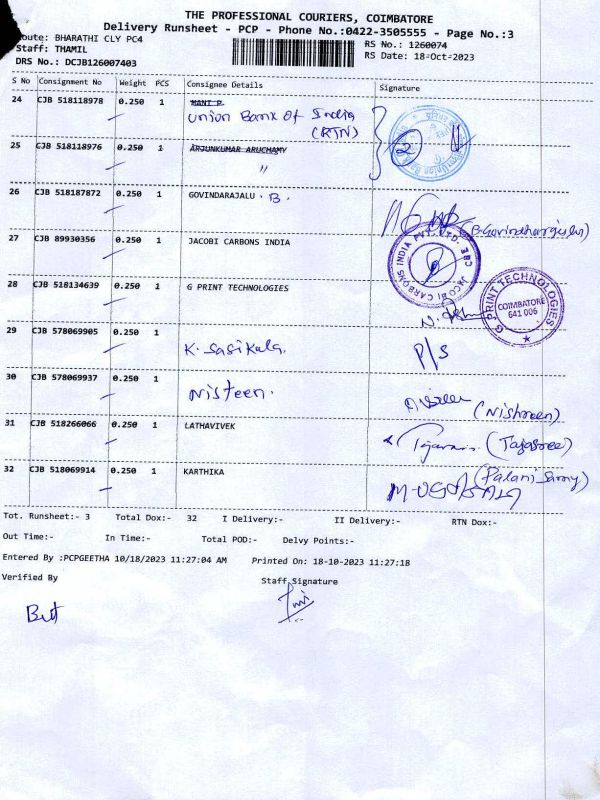 THE PROFESSIONAL COURIERS, COIMBATORE
Delivery Runsheet - PCP - Phone No.:0422-3505555 - Page No.:3
oute: BHARATHI CLY PC4
RS No.: 1260074
Staff: THAMIL
RS Date: 18-Oct-2023
DRS No.: DCJB126007403
S No Consignment No Weight PCS Consignee Details Signature
24 CJB 518118978 0.250 1 MANI P
Union Bank Of India
(RTN)
2
25 CJB 518118976 0.250 1 ARJUNKUMAR ARUCHAMY
"
26 CJB 518187872 0.250 1 GOVINDARAJALU . B.
(B.Govindharajulu)
27 CJB 89930356 0.250 1 JACOBI CARBONS INDIA
JACOBI CARBONS INDIA PVT. LTD. CBE
28 CJB 518134639 0.250 1 G PRINT TECHNOLOGIES
G PRINT TECHNOLOGIES
COIMBATORE
641 006
29 CJB 578069905 0.250 1
K. Sasikala.
P/S
30 CJB 578069937 0.250 1
Nisteen.
(Nishreen)
31 CJB 518266066 0.250 1 LATHAVIVEK
(Tajasree)
32 CJB 518069914 0.250 1 KARTHIKA
(Palani Samy)
Tot. Runsheet:- 3 Total Dox:- 32 I Delivery:- II Delivery:- RTN Dox:-
Out Time:- In Time:- Total POD:- Delvy Points:-
Entered By :PCPGEETHA 10/18/2023 11:27:04 AM Printed On: 18-10-2023 11:27:18
Verified By Staff Signature